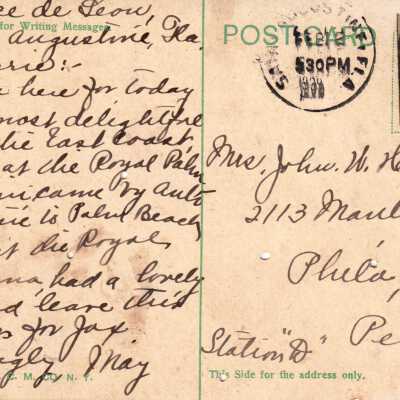 ce de Leon,
for Writing Messages.
Augustine, Fla.
rie:-
here for today
most delightful
the East Coast,
at the Royal Palm
came by auto
is Palm Beach
at the Royal
had a lovely
d leave this
for Jax
May
C. M. CO. N. Y.
POST CARD
SAINT AUGUSTINE, FLA
FEB 12
530PM
Mrs. John. W. H
2113 Manl
Phila,
Pe
Station "D"
This Side for the address only.